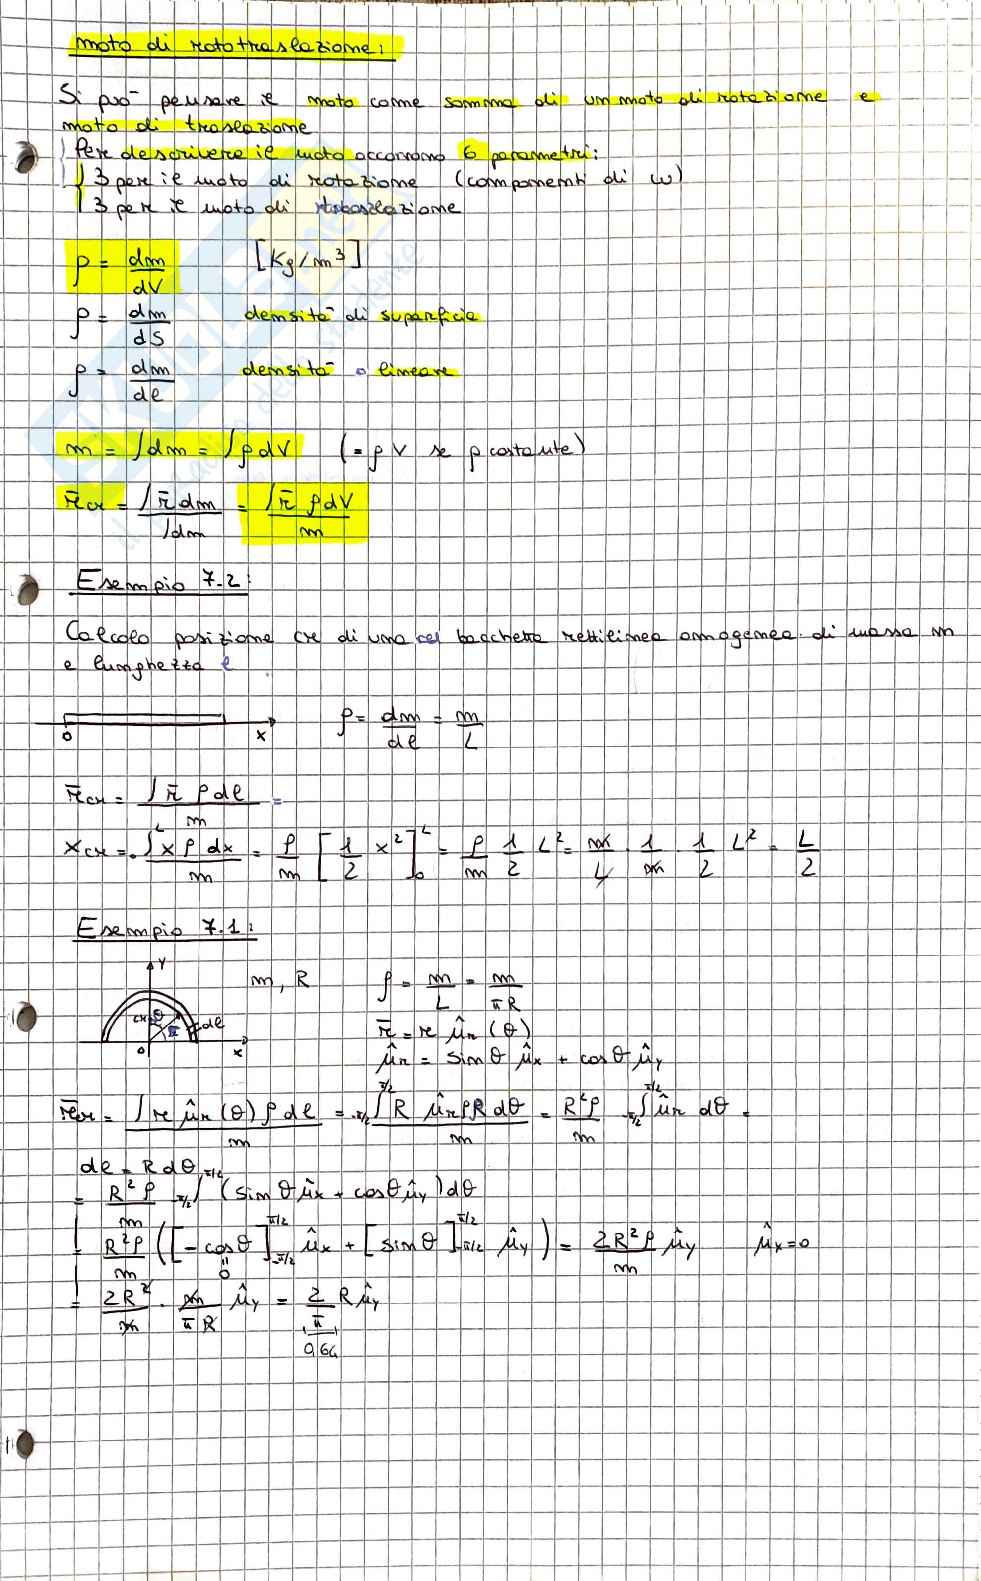 moto di rototraslazione:
Si può pensare il moto come somma di un moto di rotazione e
moto di traslazione
Per descrivere il moto occorrono 6 parametri:
3 per il moto di rotazione (componenti di ω)
3 per il moto di traslazione
ρ = dm/dV [Kg/m³]
ρ = dm/dS densità di superficie
ρ = dm/dl densità lineare
m = ∫dm = ∫ρdV (= ρV se ρ costante)
r̄cm = ∫r̄dm/∫dm = ∫r̄ρdV/m
Esempio 7.2:
Calcolo posizione CM di una bacchetta rettilinea omogenea di massa m
e lunghezza l
0 x ρ = dm/dl = m/L
r̄cm = ∫r̄ρdl/m =
xcm = ∫ᴸxρdx/m = ρ/m [1/2 x²]₀ᴸ = ρ/m 1/2 L² = m/L · 1/m · 1/2 L² = L/2
Esempio 7.1:
Y CM θ r̄ dl 0 x
m, R ρ = m/L = m/πR
r̄ = r ûr(θ)
ûr = sinθ ûx + cosθ ûy
r̄cm = ∫r ûr(θ)ρdl/m = -π/2∫π/2 R ûrρRdθ/m = R²ρ/m -π/2∫π/2 ûr dθ =
dl = Rdθ
= R²ρ/m -π/2∫π/2 (sinθûx + cosθûy)dθ
= R²ρ/m ([-cosθ]-π/2π/2 ûx + [sinθ]-π/2π/2 ûy) = 2R²ρ/m ûy ûx=0
0
= 2R²/m · m/πR ûy = 2/π Rûy
0,64